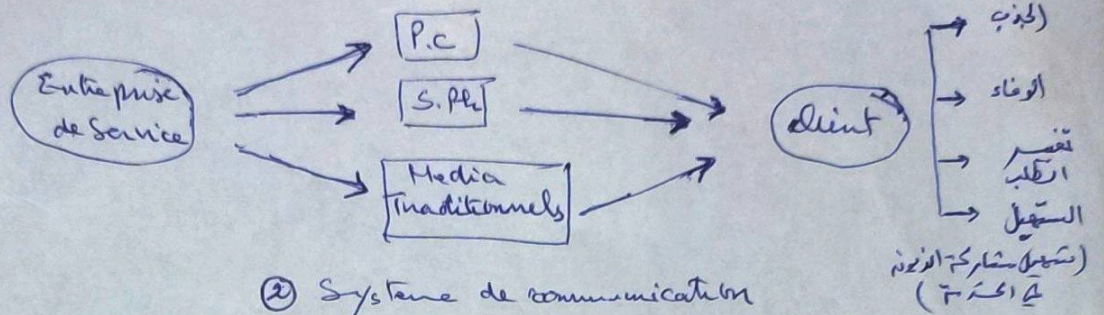 Entreprise
de Service
P.C
S.Ph
Media
Traditionnels
client
الجذب
الوفاء
تفسير
الطلب
التسهيل
(تسهيل مشاركة الزبون
في الخدمة)
② Système de communication